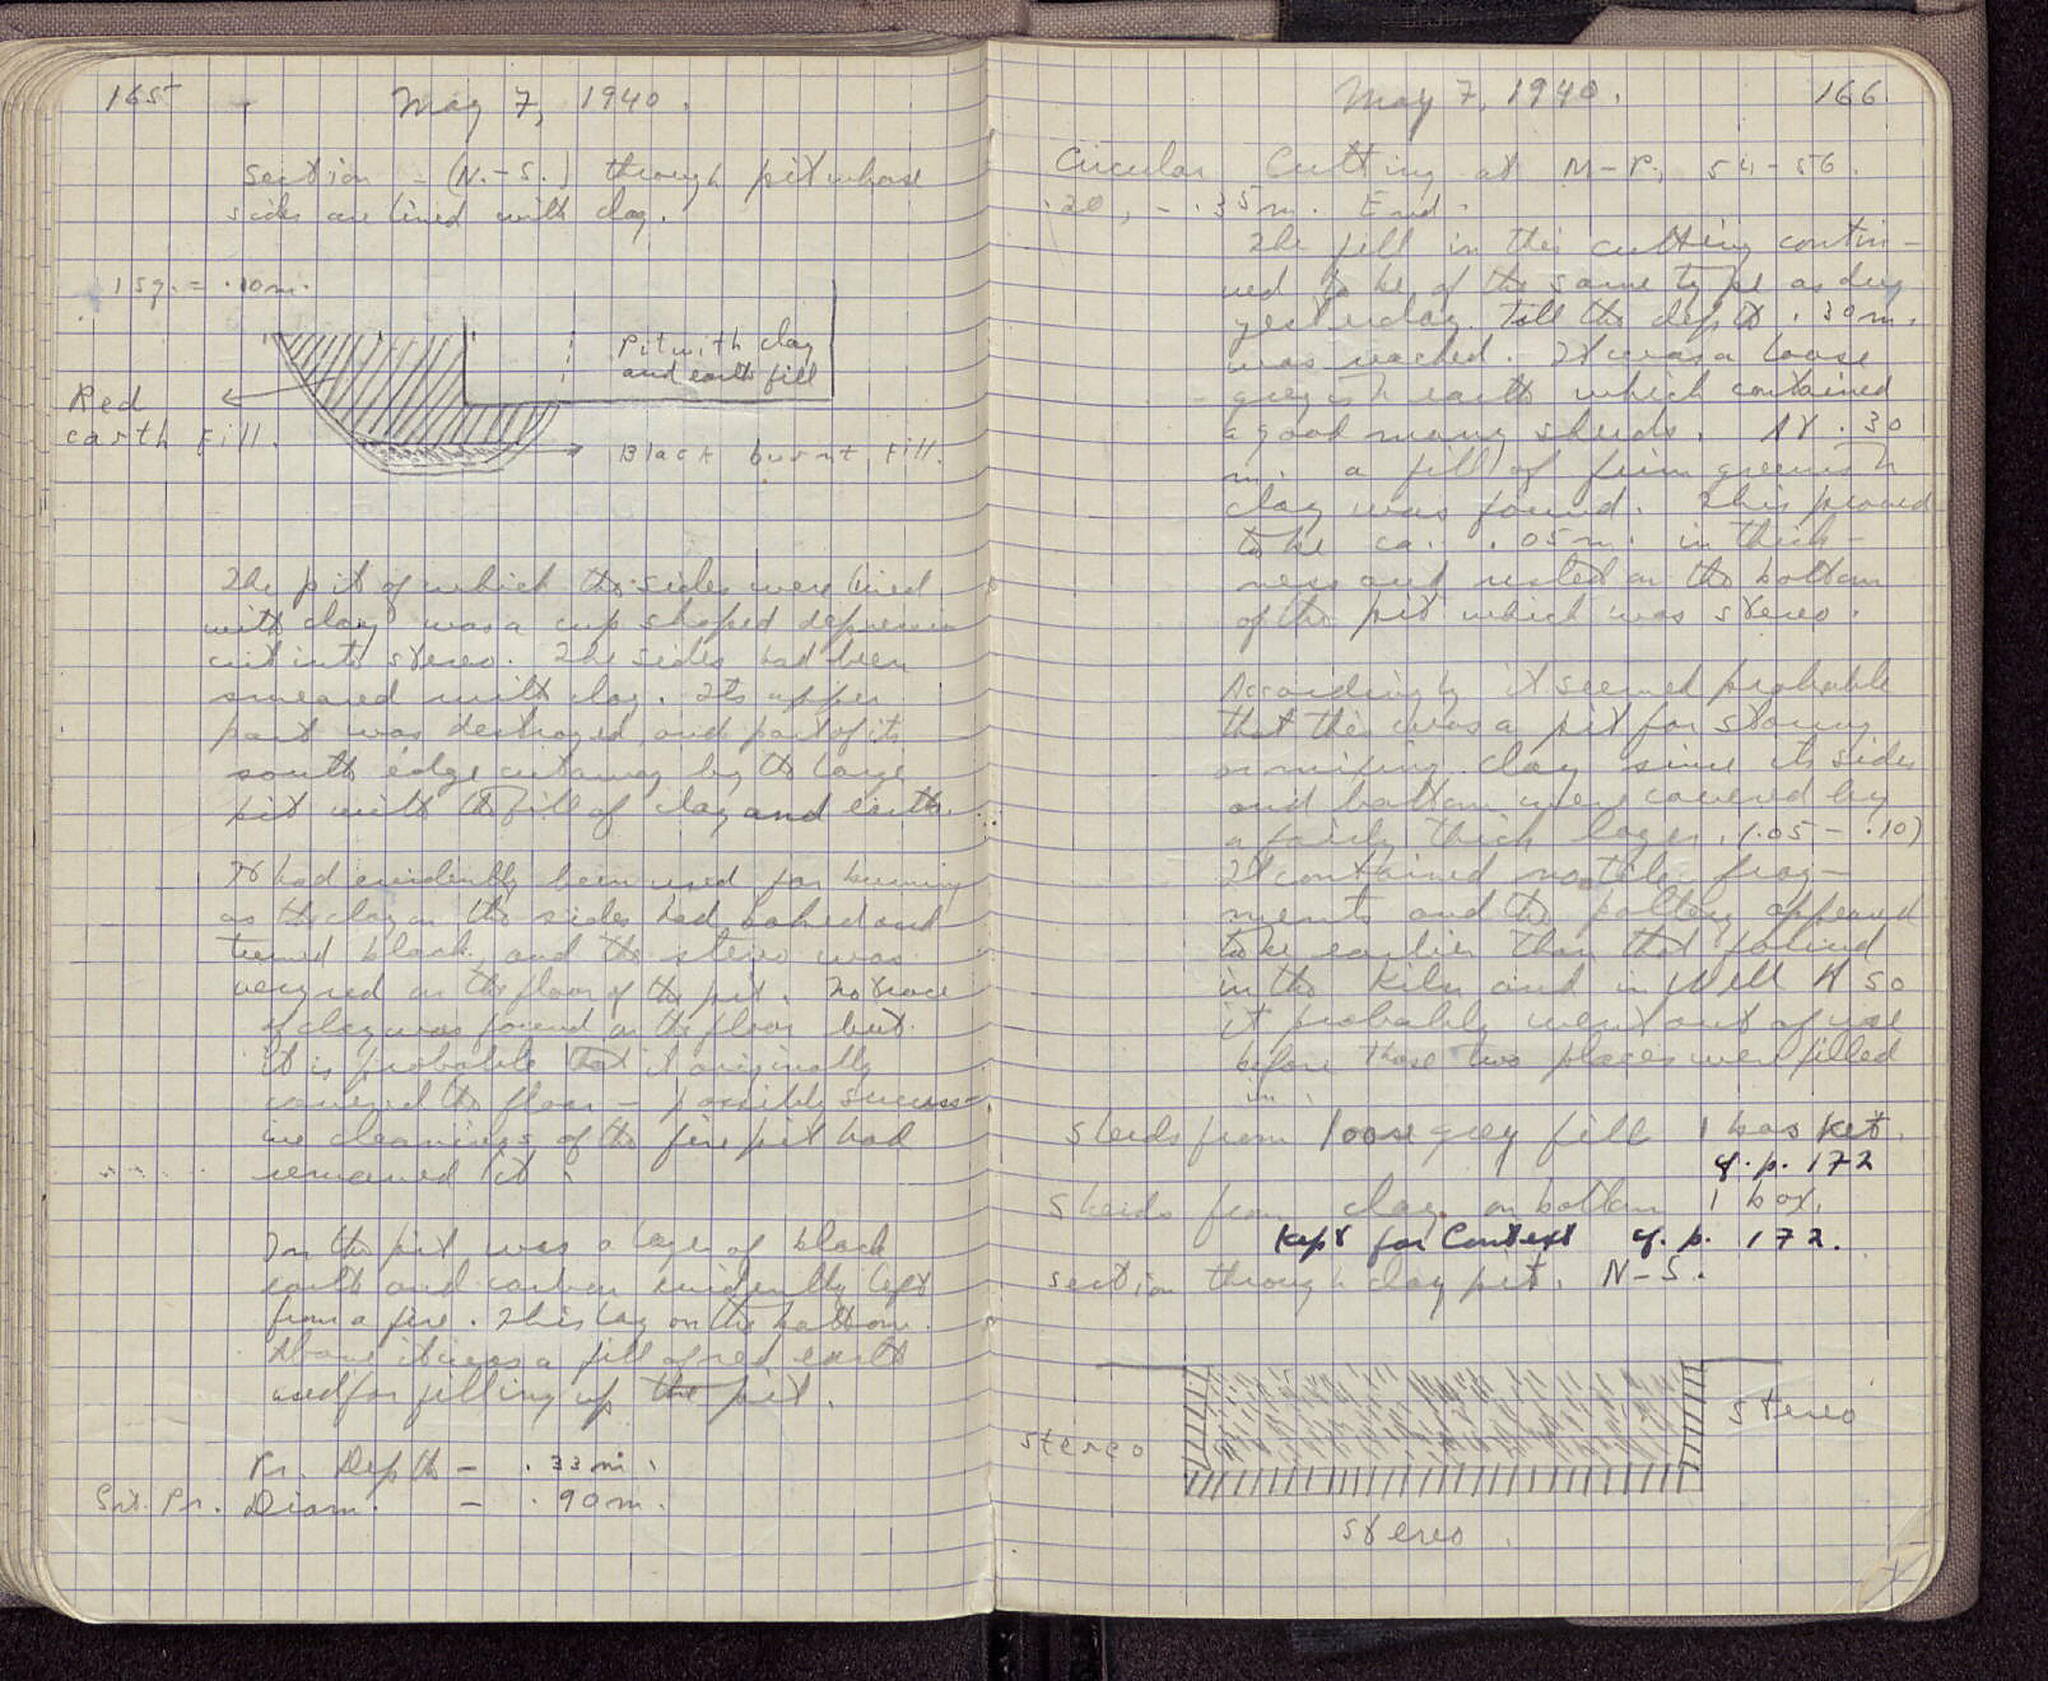 165
May 7, 1940.
Section - (N.-S.) through pit whose
sides are lined with clay.
1 sq. = .10 m.
Pit with clay
and earth fill
Red
earth Fill.
Black burnt Fill.
The pit of which the sides were lined
with clay was a cup shaped depression
cut into stereo. The sides had been
smeared with clay. Its upper
part was destroyed and part of its
south edge cut away by the large
pit with the fill of clay and earth.
It had evidently been used for burning
as the clay on the sides had baked and
turned black, and the stereo was
very red on the floor of the pit. No trace
of clay was found on the floor but
it is probable that it originally
covered the floor - possibly success-
ive cleanings of the fire pit had
removed it.
In the pit was a layer of black
earth and carbon evidently left
from a fire. This lay on the bottom.
Above it was a fill of red earth
used for filling up the pit.
Pr. Depth - .33 m.
Pr. Diam. - .90 m.
May 7, 1940.
166
Circular Cutting at M-P, 54-56.
.20, - .35 m. End.
The fill in this cutting contin-
ued to be of the same type as dug
yesterday till the depth .30 m.
was reached. It was a loose
greyish earth which contained
a good many sherds. At .30
m. a fill of firm greenish
clay was found. This proved
to be ca. .05 m. in thick-
ness and rested on the bottom
of the pit which was stereo.
Accordingly it seemed probable
that this was a pit for storing
or mixing clay since its sides
and bottom were covered by
a fairly thick layer. (.05 - .10)
It contained no tile frag-
ments and the pottery appeared
to be earlier than that found
in the Kiln and in Well A so
it probably went out of use
before those two places were filled
in.
Sherds from loose grey fill 1 basket.
cf. p. 172
Sherds from clay on bottom 1 box.
Kept for Context cf. p. 172.
Section through clay pit. N-S.
stereo
stereo
stereo